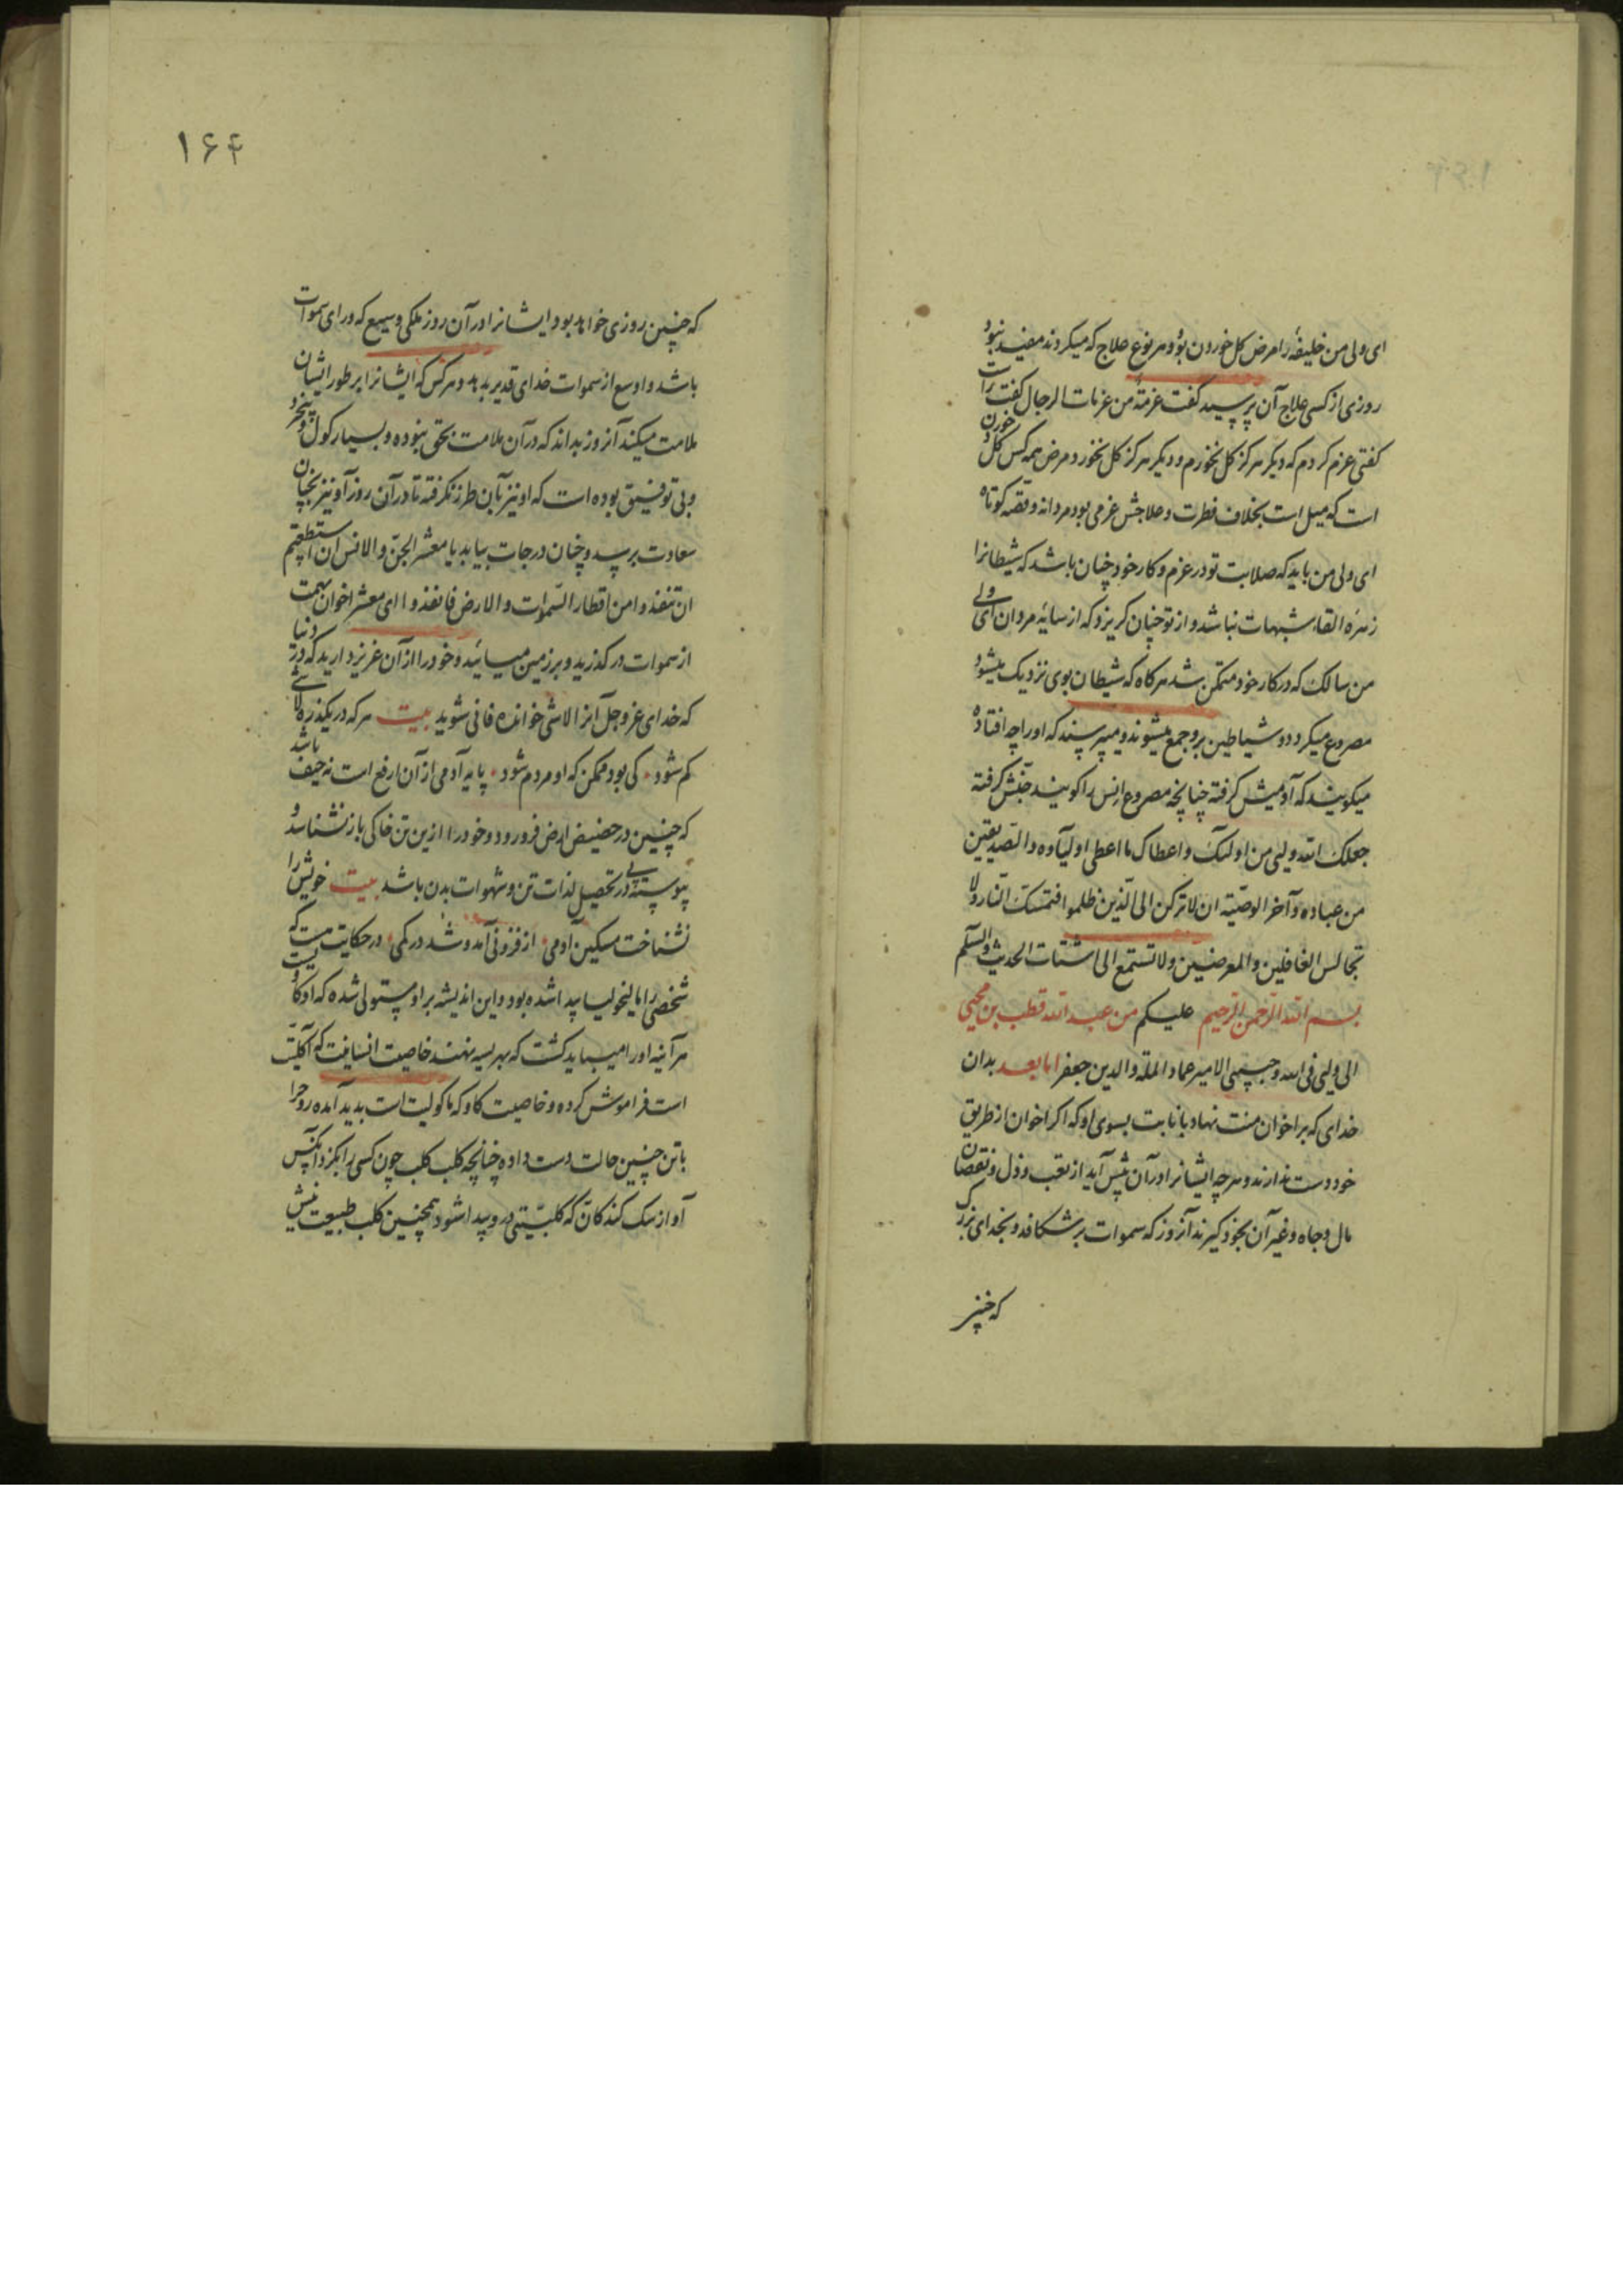 ای ولی من خلیفهٔ را مرض کل خوردن بود و هر نوع علاج که میکردند مفید نبود
روزی از کسی علاج آن پرسید گفت عزمة من عزمات الرجال گفت راست
گفتی عزم کردم که دیگر هرگز کل نخورم و دیگر هرگز کل نخورد و مرض همه کس کل خوردن
است که میل است بخلاف فطرت و علاجش عزمی بود مردانه و قصه کوتاه
ای ولی من باید که صلابت تو در عزم و کار خود چنان باشد که شیطانرا
زهره القاء شبهات نباشد و از تو چنان گریزد که از سایهٔ مردان ای ولی
من سالک که در کار خود متمکن شد هرگاه که شیطان بوی نزدیک میشود
مصروع میگردد و شیاطین برو جمع میشوند و میپرسند که او را چه افتاده
میگویند که آدمیش گرفته چنانچه مصروع انس را گویند جنش گرفته
جعلک الله ولیی من اولئک و اعطاک ما اعطی اولیآءه و الصدیقین
من عباده و آخر الوصیة ان لا ترکن الی الذین ظلموا فتمسک النار و لا
تجالس الغافلین و المعرضین و لا تستمع الی اشتات الحدیث و السلم
علیکم بسم الله الرحمن الرحیم من عبد الله قطب بن محیی
الی ولیی فی الله و حبیبی الامیر عماد الملة و الدین جعفر اما بعد بدان
خدای که بر اخوان منت نهاد بانابت بسوی او که اگر اخوان از طریق
خود دست ندارند و هر چه ایشانرا در آن پیش آید از تعب و ذل و نقصان
مال و جاه و غیر آن بخود گیرند آنروز که سموات برشکافد و بخدای بزرگ
که چنین
۱۶۴
که چنین روزی خواهد بود ایشانرا در آن روز ملکی وسیع که ورای سموات
باشد و اوسع از سموات خدای قدیر بدهد و هر کس که ایشانرا بر طور ایشان
ملامت میکند آنروز بداند که در آن ملامت بحق نبوده و بسیار کول و بیخرد
و بی توفیق بوده است که او نیز بآن طرز نگرفته تا در آن روز او نیز بچنان
سعادت برسد و چنان درجات بیابد یا معشر الجن و الانس ان استطعتم
ان تنفذوا من اقطار السموات و الارض فانفذوا ای معشر اخوان بهمت
از سموات درگذرید و بر زمین میسائید و خود را از آن عزیز دارید که در دنیا
که خدای عز و جل آنرا لاشی خوانده فانی شوید بیت هر که در یکذره لاشی
کم شود کی بود ممکن که او مردم شود پایه آدمی از آن ارفع است نه حیف باشد
که چنین در حضیض ارض فرو رود و خود را از این تن خاکی باز نشناسد و
پیوسته پی در تحصیل لذات تن و شهوات بدن باشد بیت خویش را
نشناخت مسکین آدمی از فزونی آمد و شد در کمی در حکایت هست که
شخصی را مالیخولیا پیدا شده بود و این اندیشه بر او مستولی شده که او کاویست
هر آینه او را میباید کشت که بهریسه نهند خاصیت انسانیت که آکلیت
است فراموش کرده و خاصیت کاو که ماکولیت است پدید آمده روح را
با تن چنین حالت دست داده چنانچه کلب کلب چون کسی را بگزد آنکس
آواز سک کند کان که کلبیتی در و پیدا شود همچنین کلب طبیعت نیش